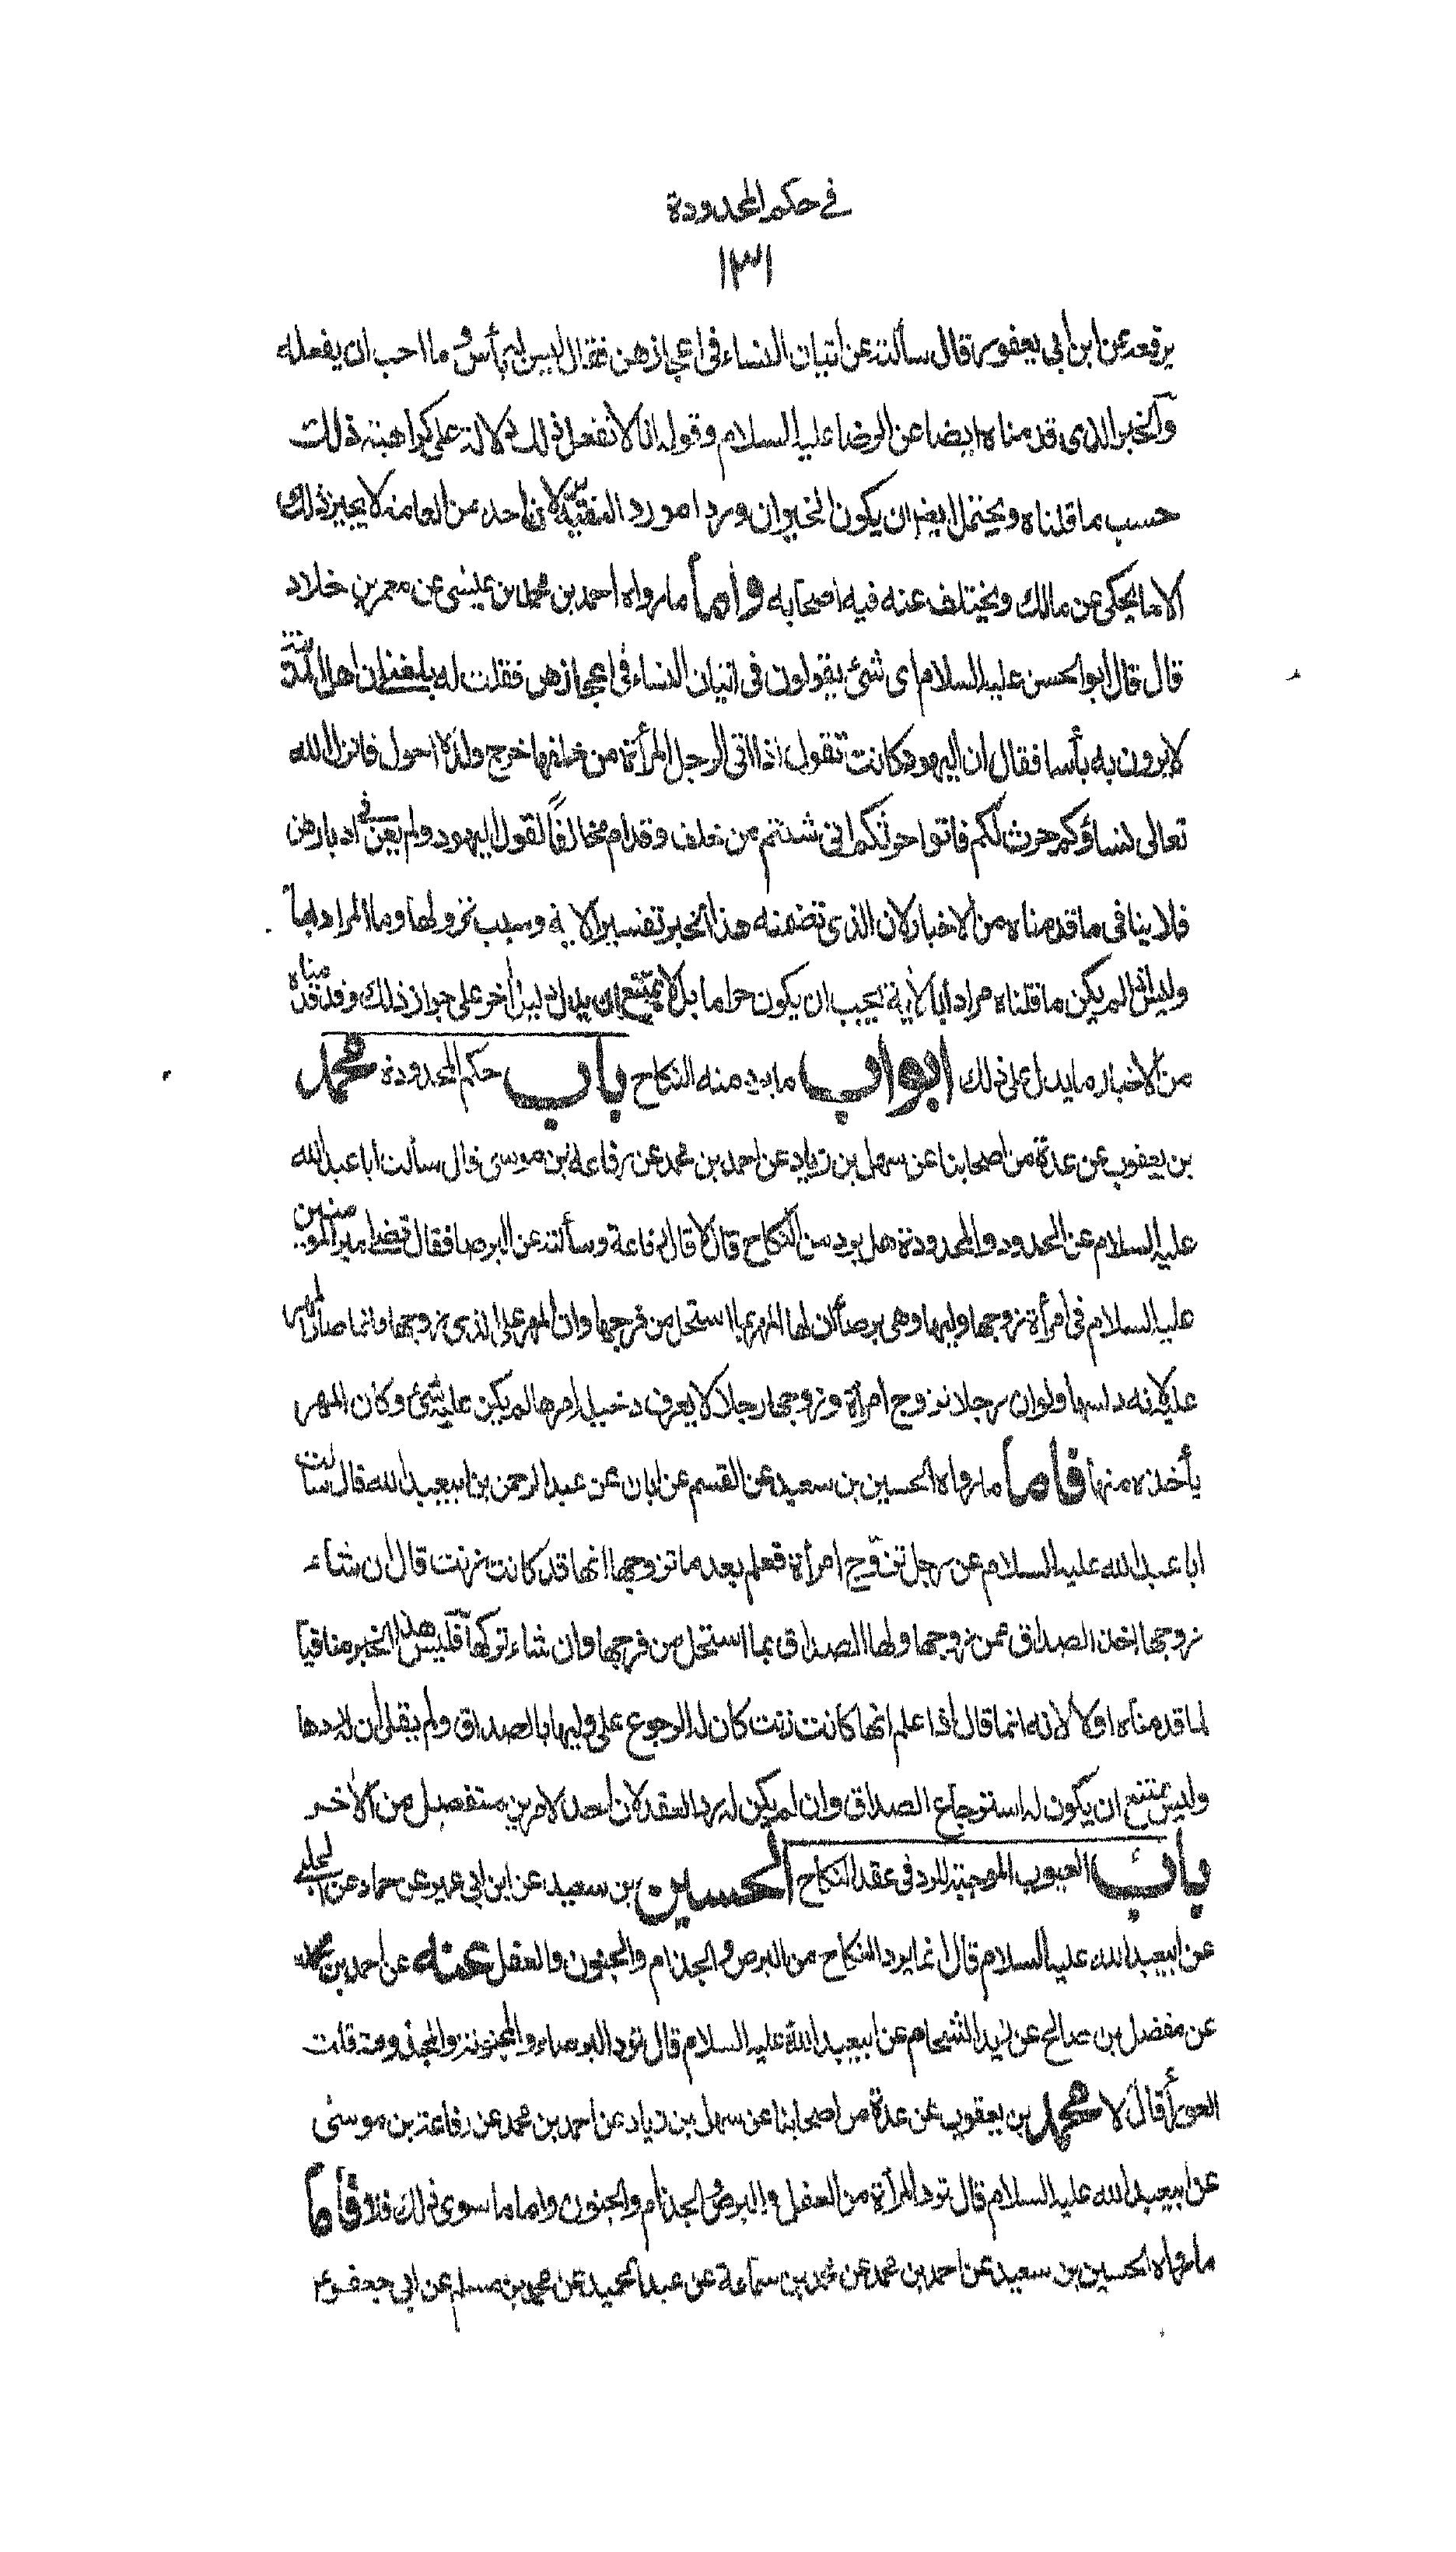 في حكم المحدودة
١٣١
يرفعه عن ابن أبي يعفور قال سألته عن اتيان النساء في اعجازهن فقال ليس به بأس وما احب ان يفعله
والخبر الذي قدمناه ايضا عن الرضا عليه السلام وقوله انا لا نفعل ذلك دلالة على كراهية ذلك
حسب ما قلناه ويحتمل ايضا ان يكون الخبران وردا مورد التقية لان احد من العامة لا يجيز ذلك
الا ما يحكى عن مالك ويختلف عنه فيه اصحابه واما ما رواه احمد بن محمد بن عيسى عن معمر بن خلاد
قال قال ابو الحسن عليه السلام اى شئ يقولون في اتيان النساء في اعجازهن فقلت له بلغني ان اهل المدينة
لا يرون به بأسا فقال ان اليهود كانت تقول اذا اتى الرجل المرأة من خلفها خرج ولده احول فانزل الله
تعالى نساؤكم حرث لكم فاتوا حرثكم انى شئتم من خلف وقدام مخالفاً لقول اليهود ولم يعن في ادبارهن
فلا ينافي ما قدمناه من الاخبار لان الذي تضمنه هذا الخبر تفسير الآية وسبب نزولها وما المراد بها
وليس اذا لم يكن ما قلناه مرادا بالآية يجب ان يكون حراما بل لا يمتنع ان يدل دليل آخر على جواز ذلك وقد قدمناه
من الاخبار ما يدل على ذلك ابواب ما يرد منه النكاح باب حكم المحدودة محمد
بن يعقوب عن عدة من اصحابنا عن سهل بن زياد عن احمد بن محمد عن رفاعة بن موسى قال سألت ابا عبد الله
عليه السلام عن المحدود والمحدودة هل يرد من النكاح قال لا قال رفاعة وسألته عن البرصا فقال قضى امير المومنين
عليه السلام في امرأة زوجها وليها وهي برصا ان لها المهر بما استحل من فرجها وان المهر على الذي زوجها وانما صار المهر
عليه لانه دلسها ولو ان رجلا تزوج امرأة وزوجها رجلا لا يعرف دخيل امرها لم يكن عليه شئ وكان المهر
يأخذه منها فاما ما رواه الحسين بن سعيد عن القسم عن ابان عن عبد الرحمن بن ابيعبد الله قال سألت
ابا عبد الله عليه السلام عن رجل تزوج امرأة فعلم بعد ما تزوجها انها قد كانت زنت قال ان شاء
زوجها اخذ الصداق ممن زوجها ولها الصداق بما استحل من فرجها وان شاء تركها فليس هذا الخبر منافيا
لما قدمناه اولا لانه انما قال اذا علم انها كانت زنت كان له الرجوع على وليها بالصداق ولم يقل ان له ردها
وليس يمتنع ان يكون له استرجاع الصداق وان لم يكن له رد العقد لان احد الامرين منفصل من الآخر
باب العيوب الموجبة للرد في عقد النكاح الحسين بن سعيد عن ابن ابي عمير عن حماد عن الحلبي
عن ابيعبد الله عليه السلام قال انما يرد النكاح من البرص والجذام والجنون والعفل عنه عن احمد بن محمد
عن مفضل بن صالح عن زيد الشحام عن ابيعبد الله عليه السلام قال ترد البرصاء والمجنونة والمجذومة قلت
العورأ قال لا محمد بن يعقوب عن عدة من اصحابنا عن سهل بن زياد عن احمد بن محمد عن رفاعة بن موسى
عن ابيعبد الله عليه السلام قال ترد المرأة من العفل والبرص والجذام والجنون واما ما سوى ذلك فلا فاما
ما رواه الحسين بن سعيد عن احمد بن محمد عن محمد بن سماعة عن عبد الحميد عن محمد بن مسلم عن ابي جعفر ع